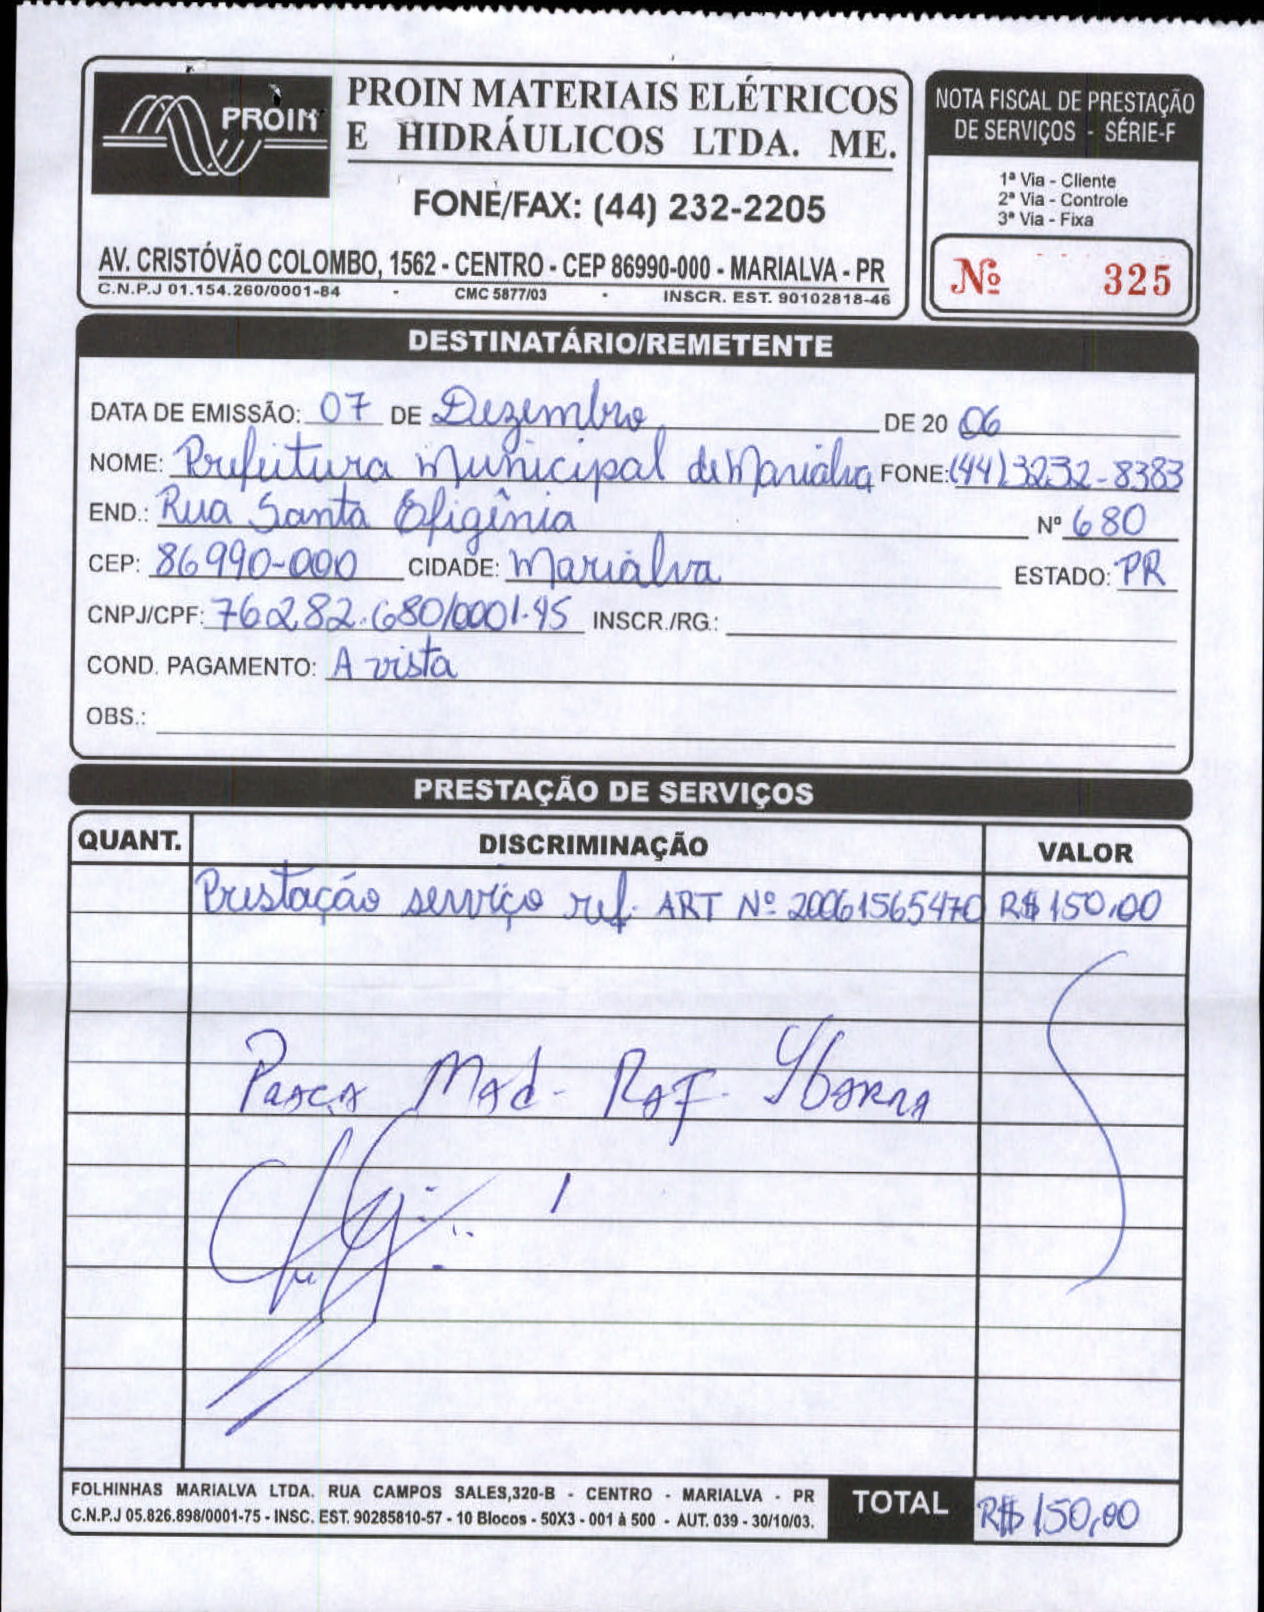 PROIN
PROIN MATERIAIS ELÉTRICOS
E HIDRÁULICOS LTDA. ME.
FONE/FAX: (44) 232-2205
AV. CRISTÓVÃO COLOMBO, 1562 - CENTRO - CEP 86990-000 - MARIALVA - PR
C.N.P.J 01.154.260/0001-84 - CMC 5877/03 - INSCR. EST. 90102818-46
NOTA FISCAL DE PRESTAÇÃO
DE SERVIÇOS - SÉRIE-F
1ª Via - Cliente
2ª Via - Controle
3ª Via - Fixa
Nº 325
DESTINATÁRIO/REMETENTE
DATA DE EMISSÃO: 07 DE Dezembro DE 20 06
NOME: Prefeitura Municipal de Marialva FONE: (44) 3232-8383
END.: Rua Santa Efigênia Nº 680
CEP: 86990-000 CIDADE: Marialva ESTADO: PR
CNPJ/CPF: 76282.680/0001-45 INSCR./RG.:
COND. PAGAMENTO: A vista
OBS.:
PRESTAÇÃO DE SERVIÇOS
QUANT. DISCRIMINAÇÃO VALOR
Prestação serviço ref. ART Nº 20061565470 R$ 150,00
Praça Mad. Raf. Ybarra
FOLHINHAS MARIALVA LTDA. RUA CAMPOS SALES,320-B - CENTRO - MARIALVA - PR
C.N.P.J 05.826.898/0001-75 - INSC. EST. 90285810-57 - 10 Blocos - 50X3 - 001 à 500 - AUT. 039 - 30/10/03.
TOTAL R$ 150,00